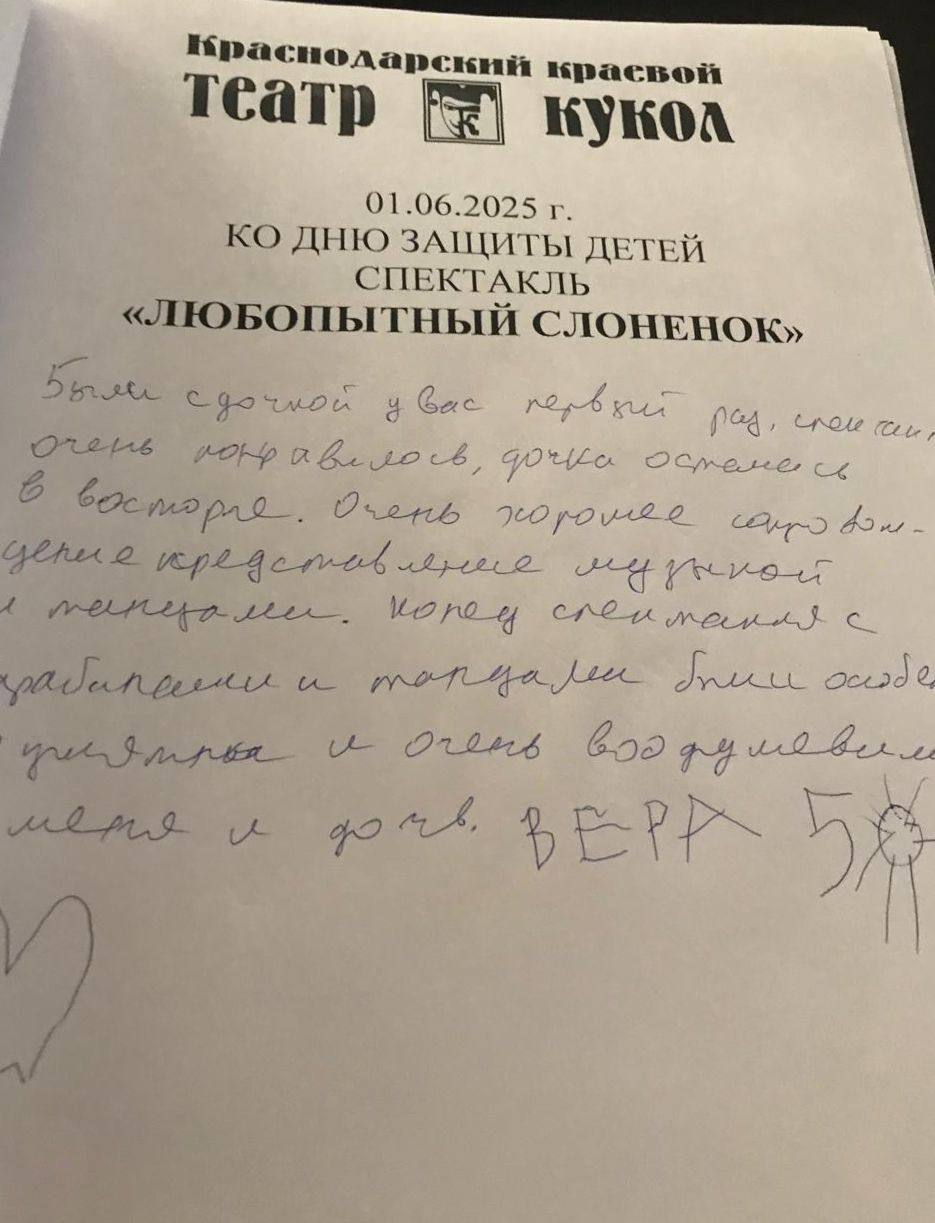 Краснодарский краевой
театр кукол
01.06.2025 г.
КО ДНЮ ЗАЩИТЫ ДЕТЕЙ
СПЕКТАКЛЬ
«ЛЮБОПЫТНЫЙ СЛОНЕНОК»
Были с дочкой у вас первый раз,
очень понравилось, дочка осталась
в восторге. Очень хорошее сопровож-
дение представление музыкой
и танцами. Конец спектакля с
и танцами были
и очень воодушевили
меня и дочь. ВЕРА 5